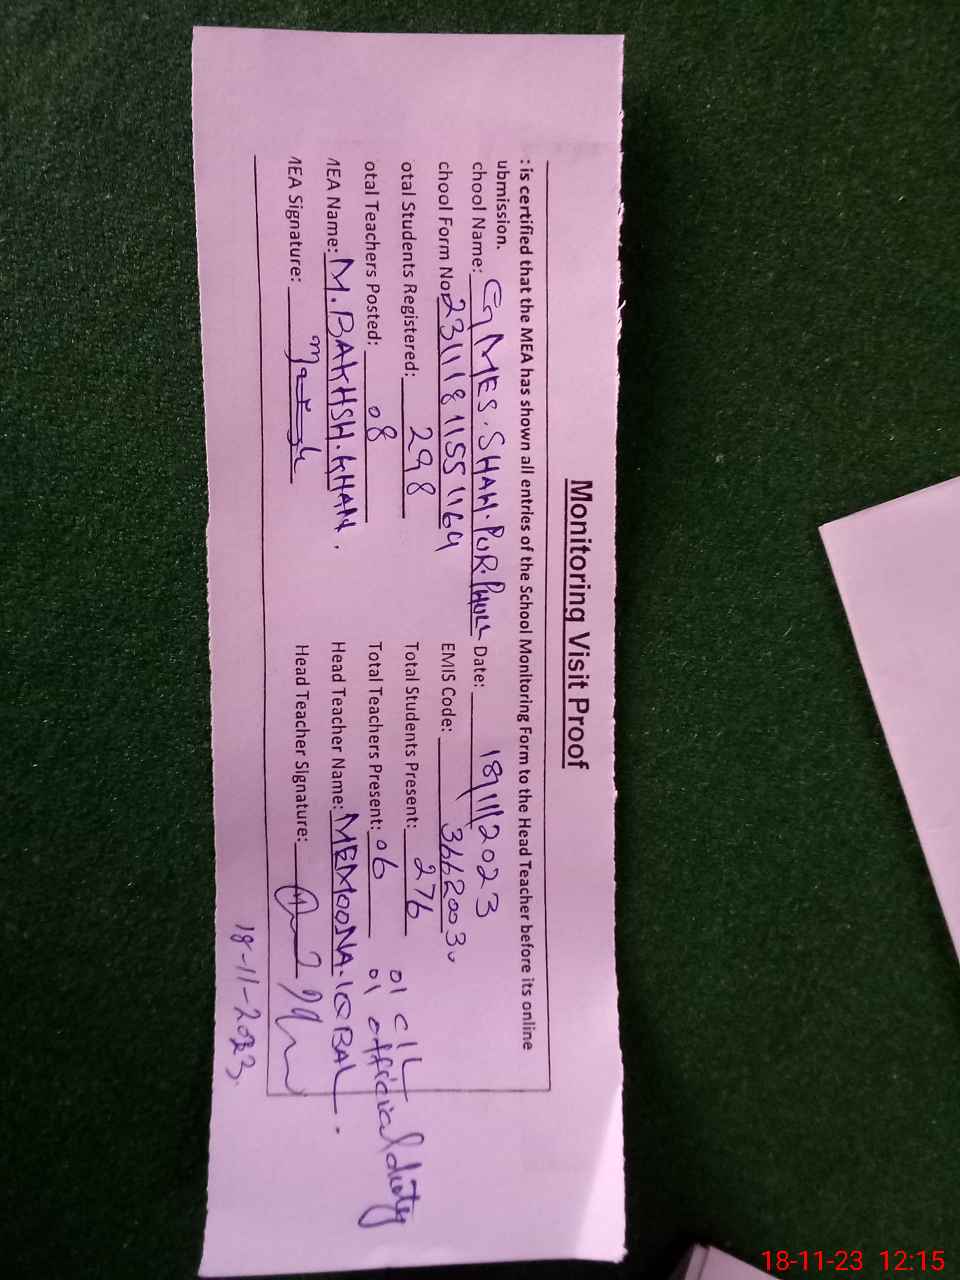 Monitoring Visit Proof
:is certified that the MEA has shown all entries of the School Monitoring Form to the Head Teacher before its online
ubmission.
chool Name: GMES. SHAH. PUR. PHULL Date: 18/11/2023
chool Form No: 23111811551164 EMIS Code: 36620030
otal Students Registered: 298 Total Students Present: 276
otal Teachers Posted: 08 Total Teachers Present: 06 01 C/L
01 official duty
MEA Name: M. BAKHSH. KHAN. Head Teacher Name: MEMOONA. IQBAL.
MEA Signature: Head Teacher Signature:
18-11-2023
18-11-23 12:15